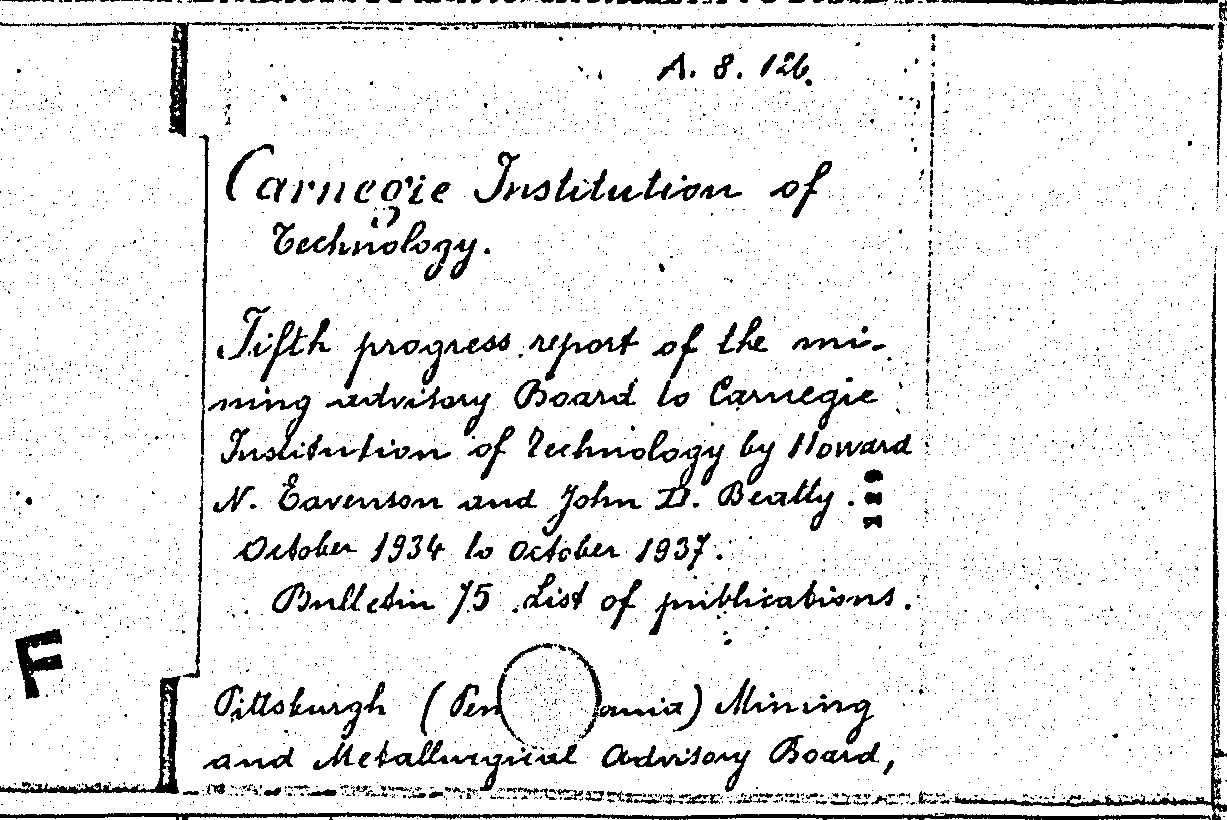 A. 8. 126.
Carnegie Institution of
Technology.
Fifth progress report of the mi-
ning advisory Board to Carnegie
Institution of Technology by Howard
N. Eavenson and John D. Beatty.
129
October 1934 to October 1937.
Bulletin 75 List of publications.
F
Pittsburgh (Pen ania) Mining
and Metallurgical Advisory Board,